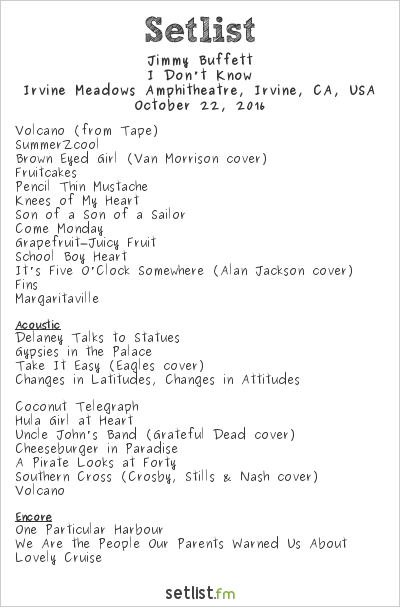 Setlist
Jimmy Buffett
I Don't Know
Irvine Meadows Amphitheatre, Irvine, CA, USA
October 22, 2016
Volcano (from Tape)
SummerZcool
Brown Eyed Girl (Van Morrison cover)
Fruitcakes
Pencil Thin Mustache
Knees of My Heart
Son of a Son of a Sailor
Come Monday
Grapefruit-Juicy Fruit
School Boy Heart
It's Five O'Clock Somewhere (Alan Jackson cover)
Fins
Margaritaville
Acoustic
Delaney Talks to Statues
Gypsies in the Palace
Take It Easy (Eagles cover)
Changes in Latitudes, Changes in Attitudes
Coconut Telegraph
Hula Girl at Heart
Uncle John's Band (Grateful Dead cover)
Cheeseburger in Paradise
A Pirate Looks at Forty
Southern Cross (Crosby, Stills & Nash cover)
Volcano
Encore
One Particular Harbour
We Are the People Our Parents Warned Us About
Lovely Cruise
setlist.fm